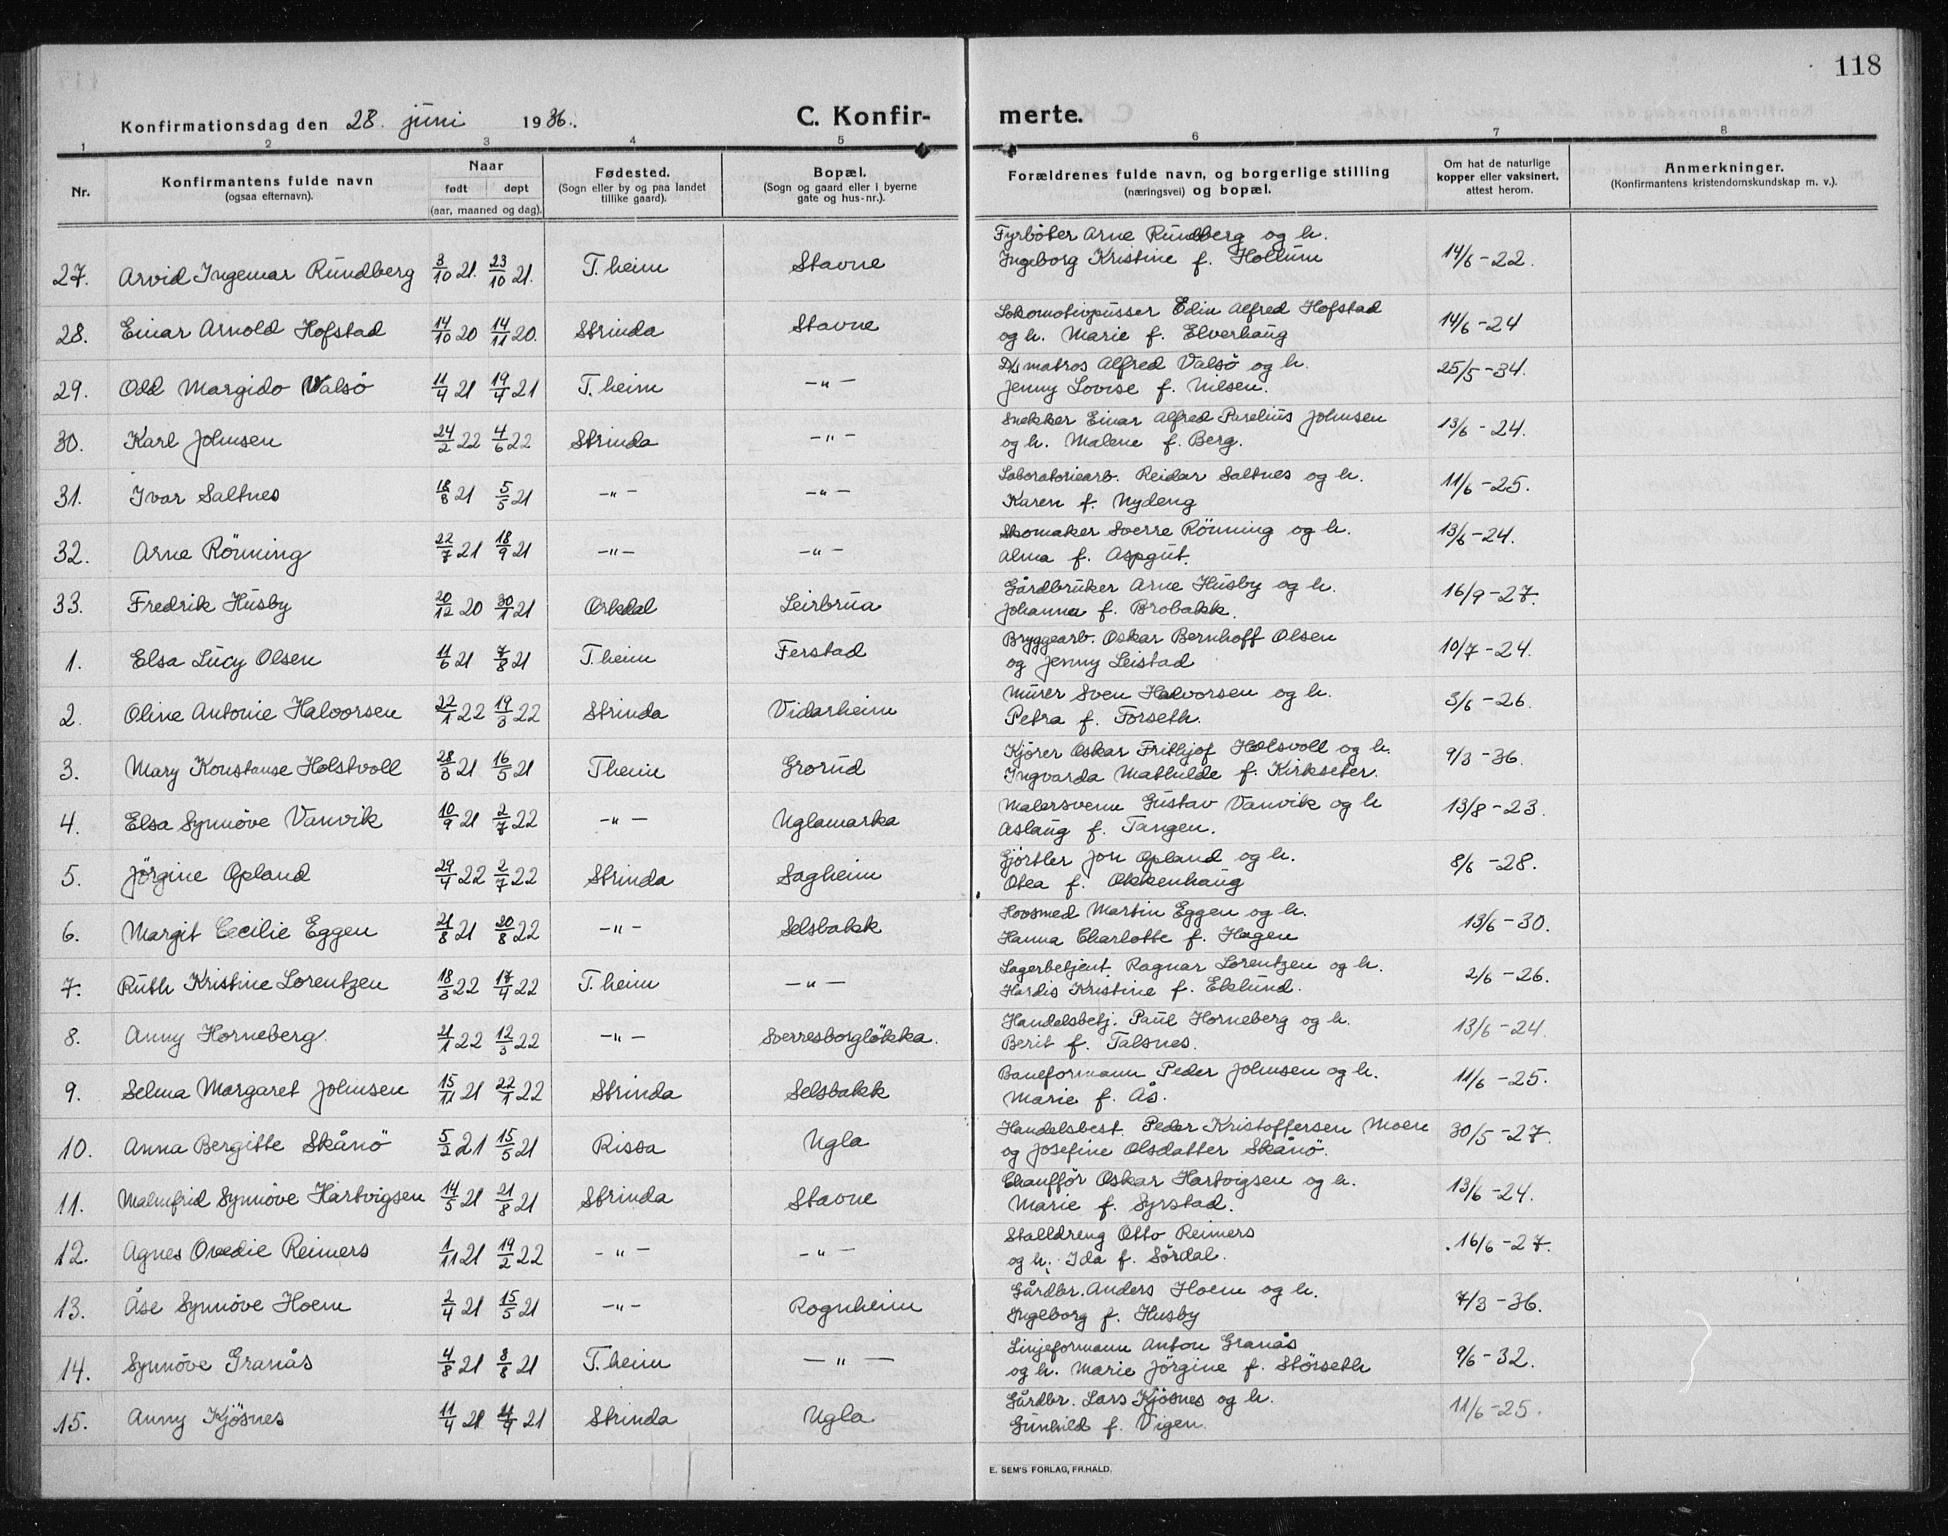 118
Konfirmationsdag den 28. juni 1936.
C. Konfirmerte.
1 2 3 4 5 6 7 8
Nr.
Konfirmantens fulde navn
(ogsaa efternavn).
Naar
født døpt
(aar, maaned og dag).
Fødested.
(Sogn eller by og paa landet
tillike gaard).
Bopæl.
(Sogn og gaard eller i byerne
gate og hus-nr.).
Forældrenes fulde navn, og borgerlige stilling
(næringsvei) og bopæl.
Om hat de naturlige
kopper eller vaksinert,
attest herom.
Anmerkninger.
(Konfirmantens kristendomskundskap m. v.).
27. Arvid Ingemar Rundberg 3/10 21. 23/10 21. T.heim Stavne Fyrböter Arne Rundberg og h. 14/6-22.
Ingeborg Kristine f. Hollum
28. Einar Arnold Hofstad 14/10 20 14/11 20. Strinda Stavne Lokomotivpusser Edin Alfred Hofstad 14/6-24
og h. Marie f. Elverhaug
29. Odd Margido Valsö 11/4 21 19/4 21 T.heim -"- matros Alfred Valsö og h. 25/5-34.
Jenny Lovise f. Nilsen.
30. Karl Johnsen 24/2 22 4/6 22 Strinda -"- Snekker Einar Alfred Parelius Johnsen 13/6-24.
og h. Malene f. Berg.
31. Ivar Saltnes 18/3 21 5/5 21 -"- -"- Laboratoriearb. Reidar Saltnes og h. 11/6-25.
Karen f. Nydeng
32. Arne Rönning 22/7 21 18/9 21 -"- -"- Skomaker Sverre Rönning og h. 13/6-24.
Alma f. Aspgut.
33. Fredrik Husby 20/12 20 30/1 21 Orkdal Leirbrua Gårdbruker Arne Husby og h. 16/9-27.
Johanna f. Brobakk.
1. Elsa Lucy Olsen 11/6 21 7/8 21 T.heim Ferstad Bryggearb. Oskar Bernhoff Olsen 10/7-24.
og Jenny Leistad
2. Oline Antonie Halvorsen 22/1 22 19/3 22 Strinda Vidarheim Murer Sven Halvorsen og h. 3/6-26.
Petra f. Forseth.
3. Mary Konstanse Holstvoll 28/3 21 16/5 21 Theim Grorud Kjörer Oskar Frithjof Holsvoll og h. 9/3-36.
Ingvarda Mathilde f. Kirkseter.
4. Elsa Synnöve Vanvik 10/9 21 2/7 22 -"- Uglamarka Malersvenn Gustav Vanvik og h 13/8-23.
Aslaug f. Tangen.
5. Jörgine Opland 29/4 22 2/7 22 Strinda Sagheim Gjörtler Jon Opland og h. 8/6-28.
Otea f. Okkenhaug
6. Margit Cecilie Eggen 21/8 21 20/8 22 -"- Selsbakk Hovsmed Martin Eggen og h. 13/6-30.
Hanna Charlotte f. Hagen
7. Ruth Kristine Lorentzen 18/3 22 17/4 22 T.heim -"- Lagerbetjent Ragnar Lorentzen og h. 2/6-26.
Hardis Kristine f. Eklund.
8. Anny Horneberg. 21/1 22 12/3 22 -"- Sverresborglökka. Handelsbetj. Paul Horneberg og h. 13/6-24.
Berit f. Talsnes.
9. Selma Margaret Johnsen 15/11 21 22/1 22 Strinda Selsbakk Baneformann Peder Johnsen og h. 11/6-25.
Marie f. Ås.
10. Anna Bergitte Skånö 5/2 21 15/5 21 Rissa Ugla Handelsbest. Peder Kristoffersen Moen 30/5-27.
og Josefine Olsdatter Skånö.
11. Malmfrid Synnöve Hartvigsen 14/5 21 21/8 21 Strinda Stavne Chaufför Oskar Hartvigsen og h. 13/6-24.
Marie f. Syrstad.
12. Agnes Ovedie Reimers 1/11 21 19/2 22 -"- -"- Stalldreng Otto Reimers 16/6-27.
og h. Ida f. Sördal.
13. Åse Synnöve Hoem 2/4 21 15/5 21 -"- Rognheim Gårdbr. Anders Hoem og h. 7/3-36.
Ingeborg f. Husby
14. Synnöve Granås 4/8 21 8/8 21 T.heim -"- Linjeformann Anton Granås 9/6-32.
og h. Marie Jörgine f. Störseth
15. Anny Kjösnes 11/4 21 11/9 21 Strinda Ugla Gårdbr. Lars Kjösnes og h. 11/6-25.
Gunhild f. Vigen
E. SEM'S FORLAG, FR.HALD.